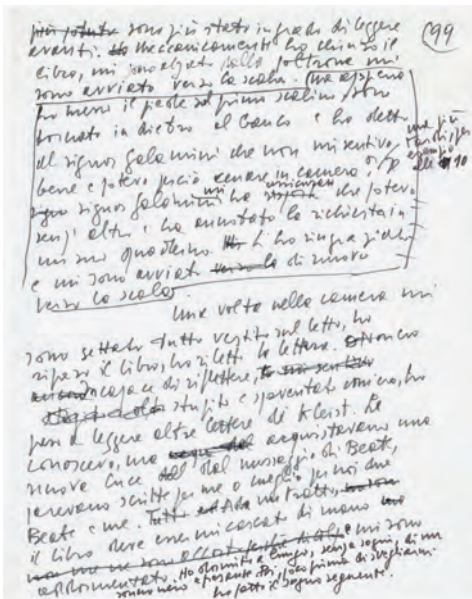 sono più stato in grado di leggere
avanti. Meccanicamente ho chiuso il
libro, mi sono alzato dalla poltrona mi
sono avviato verso la scala. Ma appena
ho messo il piede sul primo scalino, sono
tornato indietro al banco e ho detto
al signor Galamini che non mi sentivo
bene e potevo perciò cenare in camera,
signor Galamini mi ha assicurato che potevo
senz'altro e ha annotato la richiesta in
un suo quaderno. L'ho ringraziato
e mi sono avviato di nuovo
verso la scala.
ma più
tardi, per
esempio
alle 10
(99
Una volta nella camera mi
sono gettato tutto vestito sul letto, ho
ripreso il libro, ho riletto la lettera. Non ero
incapace di riflettere,
stupito e spaventato ancora, ho
preso a leggere altre lettere di Kleist. Le
conoscevo, ma acquistavano una
nuova luce dal messaggio di Beate,
parevano scritte per me o meglio per noi due
Beate e me. Ad un tratto,
il libro deve essermi cascato di mano
e mi sono
addormentato. Ho dormito a lungo, senza sogni, di un
sonno nero e pesante. Poi, poco prima di svegliarmi
ho fatto il sogno seguente.